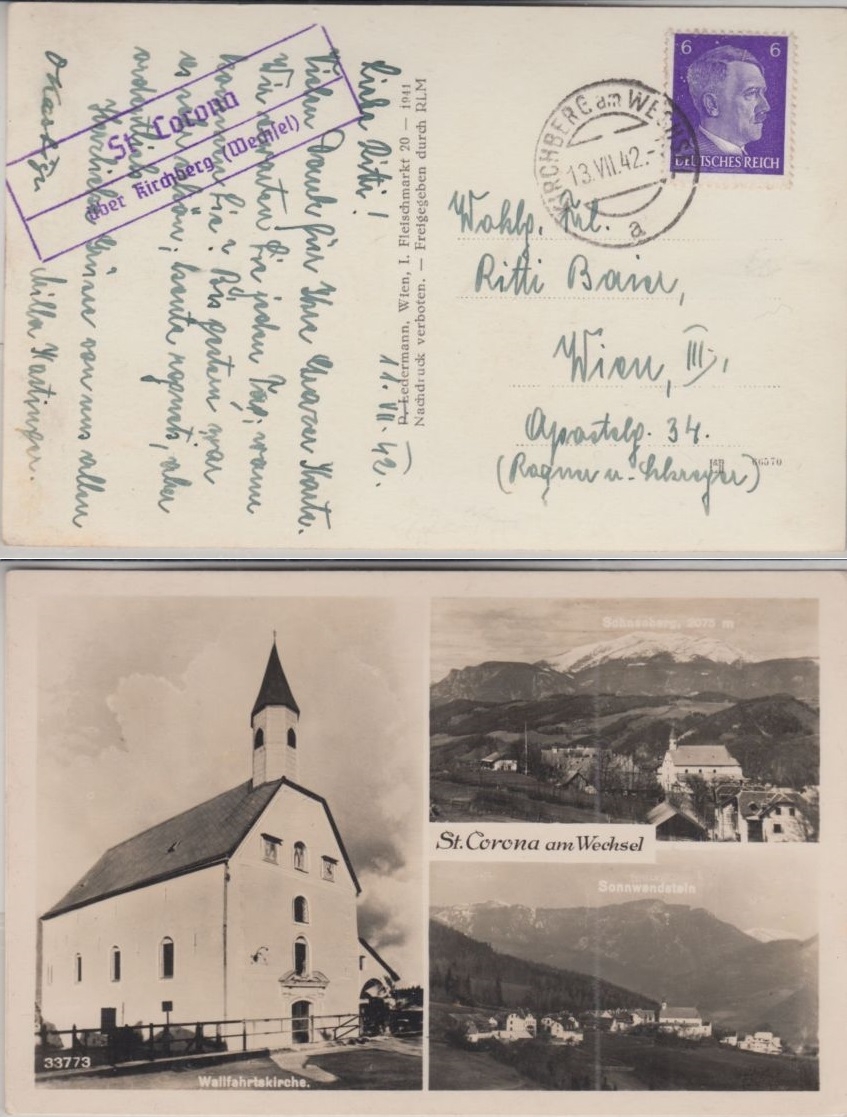 Liebe Ritti!
11. VII. 42.
Vielen Dank für Ihre Karte.
Wir
jeden Tag, wann
kommen Sie?
gestern war
es
schön, heute regnets, aber
ordentlich.
Herzliche Grüße von uns allen
Milla Hartinger.
St. Corona
über Kirchberg (Wechsel)
P. Ledermann, Wien, I. Fleischmarkt 20 — 1941
Nachdruck verboten. — Freigegeben durch RLM
6 6
DEUTSCHES REICH
KIRCHBERG am WECHSEL
13.VII.42.-
a
Wohlg. Frl.
Ritti Baier,
Wien, III.,
Apostelg. 34.
(Rogner u.
66570
Schneeberg, 2075 m
St. Corona am Wechsel
Sonnwendstein
33773
Wallfahrtskirche.